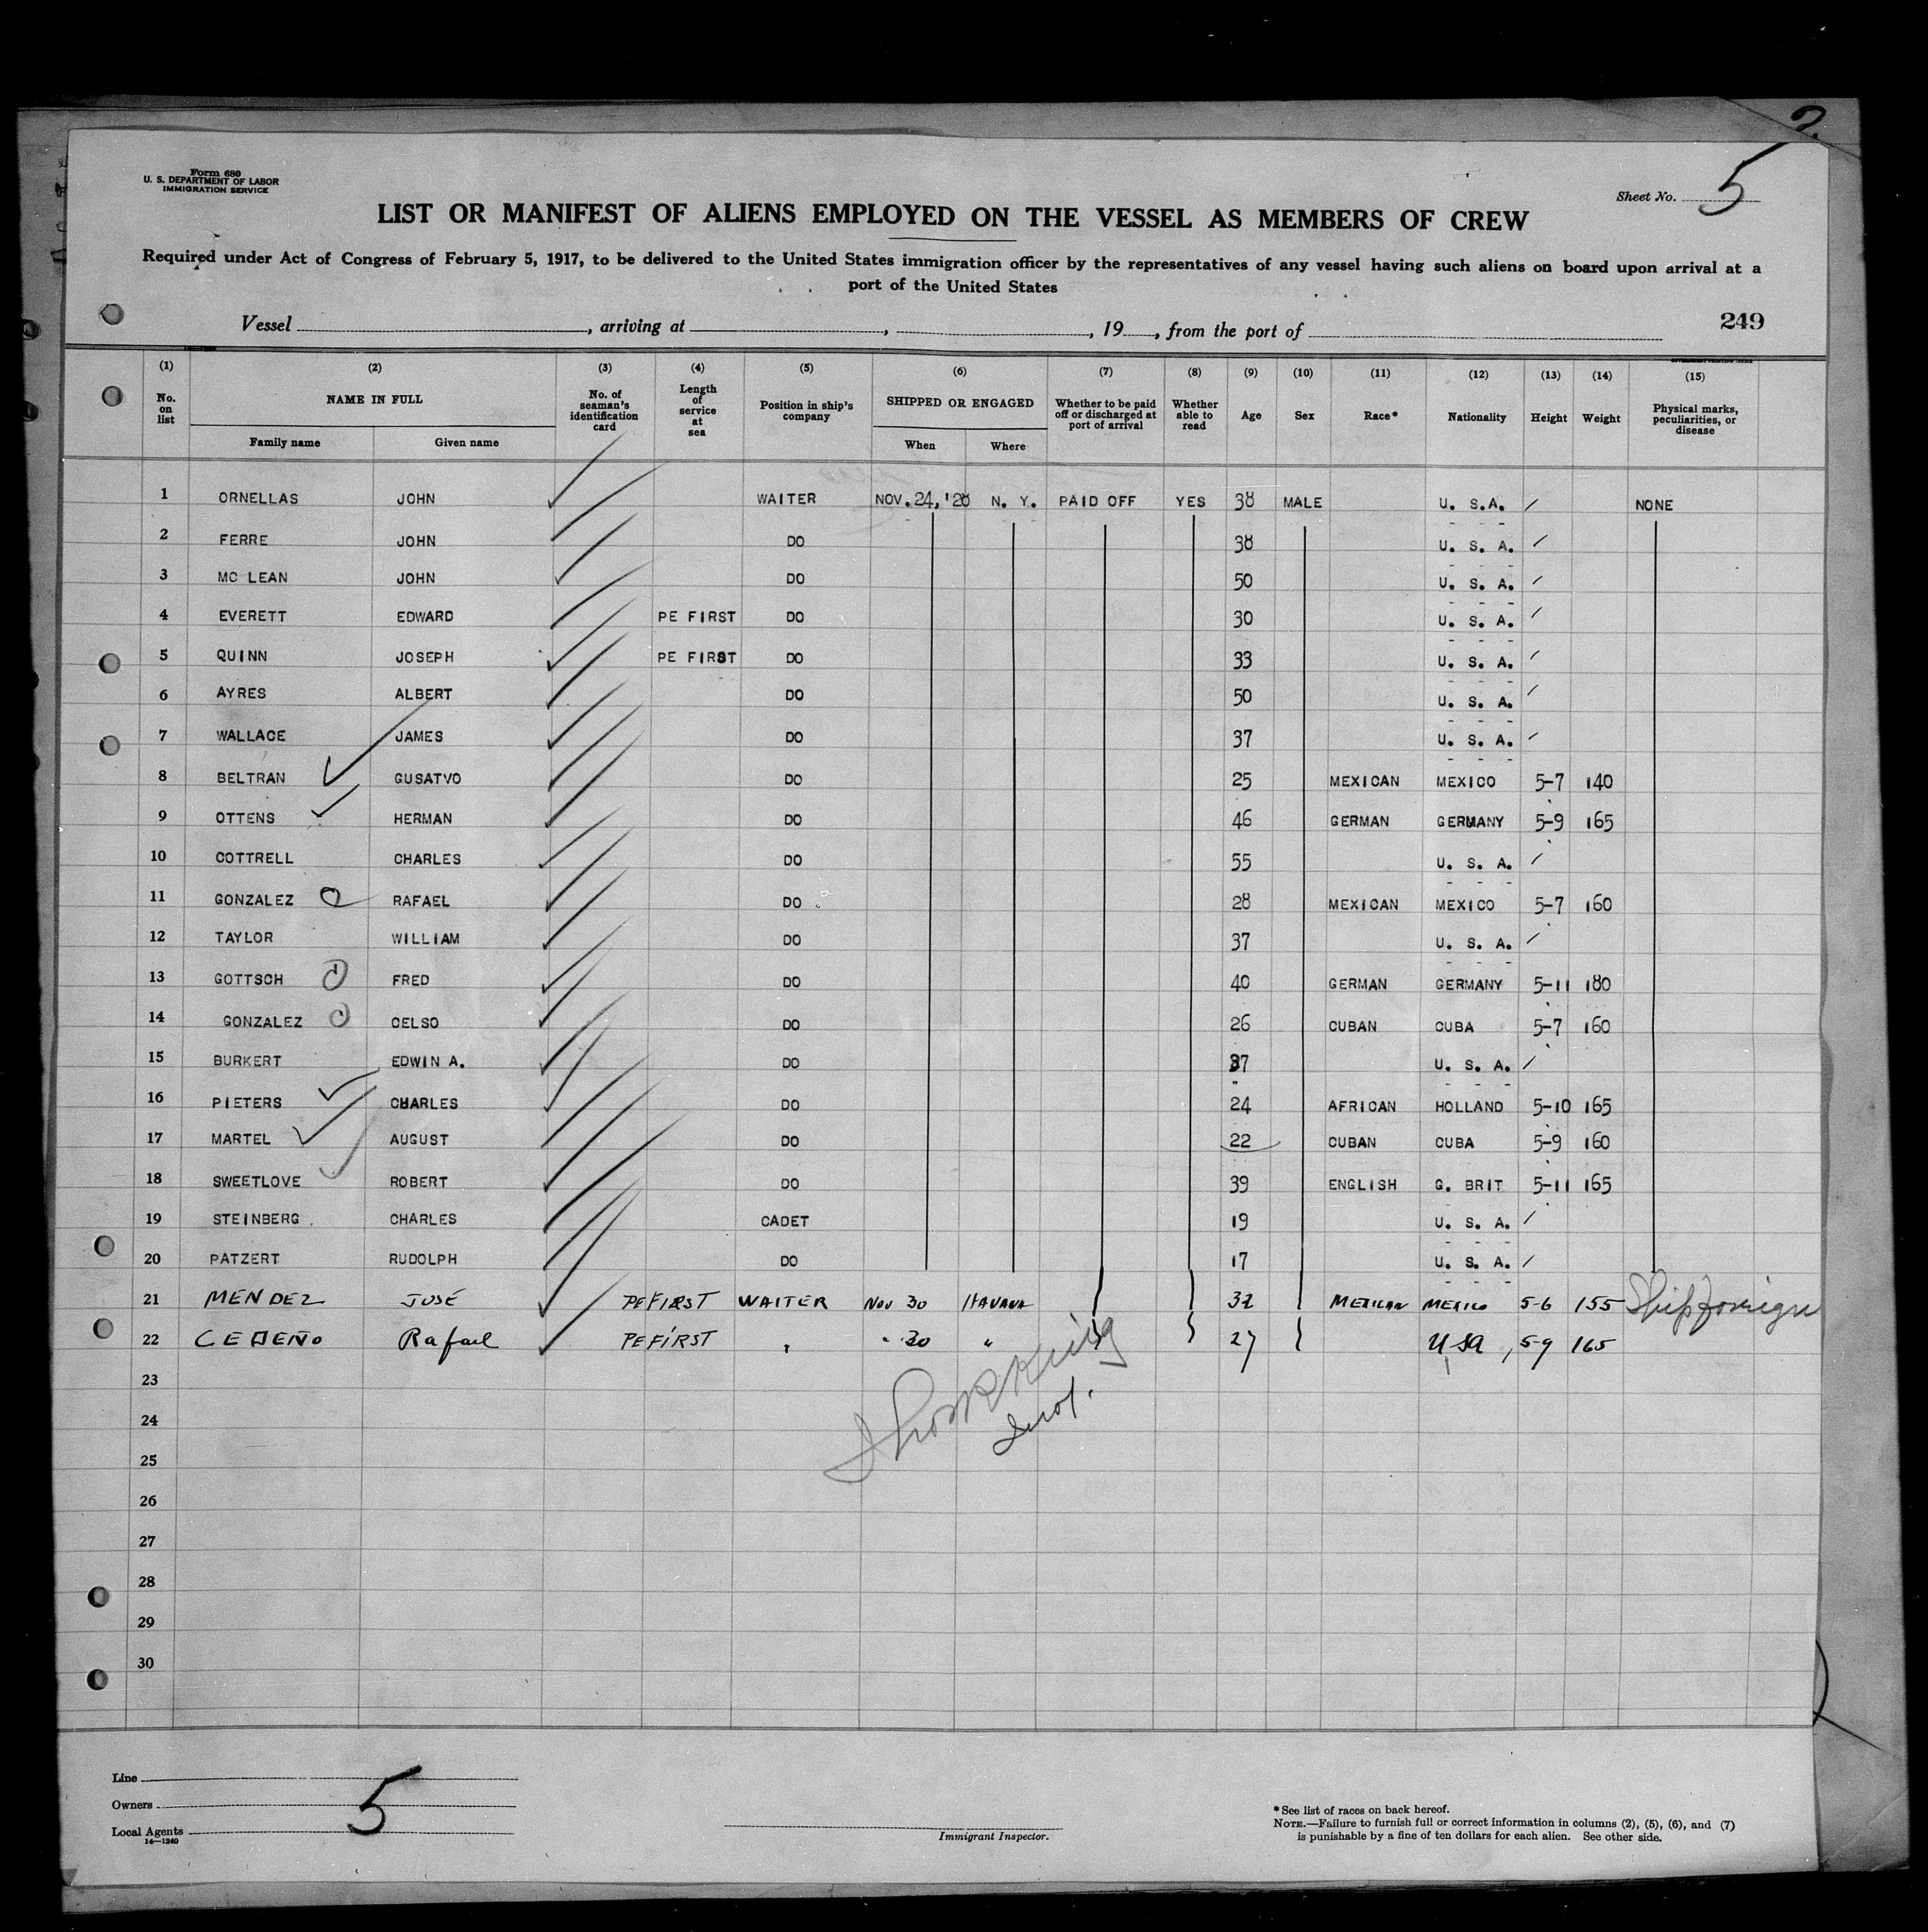 Form 680
U. S. DEPARTMENT OF LABOR
IMMIGRATION SERVICE
Sheet No. 5
LIST OR MANIFEST OF ALIENS EMPLOYED ON THE VESSEL AS MEMBERS OF CREW
Required under Act of Congress of February 5, 1917, to be delivered to the United States immigration officer by the representatives of any vessel having such aliens on board upon arrival at a
port of the United States
Vessel , arriving at , , 19 , from the port of
249
(1) (2) (3) (4) (5) (6) (7) (8) (9) (10) (11) (12) (13) (14) (15)
No. on list NAME IN FULL No. of seaman's identification card Length of service at sea Position in ship's company SHIPPED OR ENGAGED Whether to be paid off or discharged at port of arrival Whether able to read Age Sex Race* Nationality Height Weight Physical marks, peculiarities, or disease
Family name Given name When Where
1 ORNELLAS JOHN WAITER NOV.24,'28 N. Y. PAID OFF YES 38 MALE U. S.A. NONE
2 FERRE JOHN DO 38 U. S. A.
3 MC LEAN JOHN DO 50 U. S. A.
4 EVERETT EDWARD PE FIRST DO 30 U. S. A.
5 QUINN JOSEPH PE FIRST DO 33 U. S. A.
6 AYRES ALBERT DO 50 U. S. A.
7 WALLACE JAMES DO 37 U. S. A.
8 BELTRAN GUSATVO DO 25 MEXICAN MEXICO 5-7 140
9 OTTENS HERMAN DO 46 GERMAN GERMANY 5-9 165
10 COTTRELL CHARLES DO 55 U. S. A.
11 GONZALEZ RAFAEL DO 28 MEXICAN MEXICO 5-7 160
12 TAYLOR WILLIAM DO 37 U. S. A.
13 GOTTSCH FRED DO 40 GERMAN GERMANY 5-11 180
14 GONZALEZ CELSO DO 26 CUBAN CUBA 5-7 160
15 BURKERT EDWIN A. DO 37 U. S. A.
16 PIETERS CHARLES DO 24 AFRICAN HOLLAND 5-10 165
17 MARTEL AUGUST DO 22 CUBAN CUBA 5-9 160
18 SWEETLOVE ROBERT DO 39 ENGLISH G. BRIT 5-11 165
19 STEINBERG CHARLES CADET 19 U. S. A.
20 PATZERT RUDOLPH DO 17 U. S. A.
21 MENDEZ JOSÉ PE FIRST WAITER NOV 30 HAVANA 32 MEXICAN MEXICO 5-6 155 Ship foreign
22 CEDEÑO Rafael PE FIRST " " 30 " 27 USA 5-9 165
23
24
25
26
27
28
29
30
Line
Owners
Local Agents
14—1240
5
Immigrant Inspector.
*See list of races on back hereof.
NOTE.—Failure to furnish full or correct information in columns (2), (5), (6), and (7)
is punishable by a fine of ten dollars for each alien. See other side.